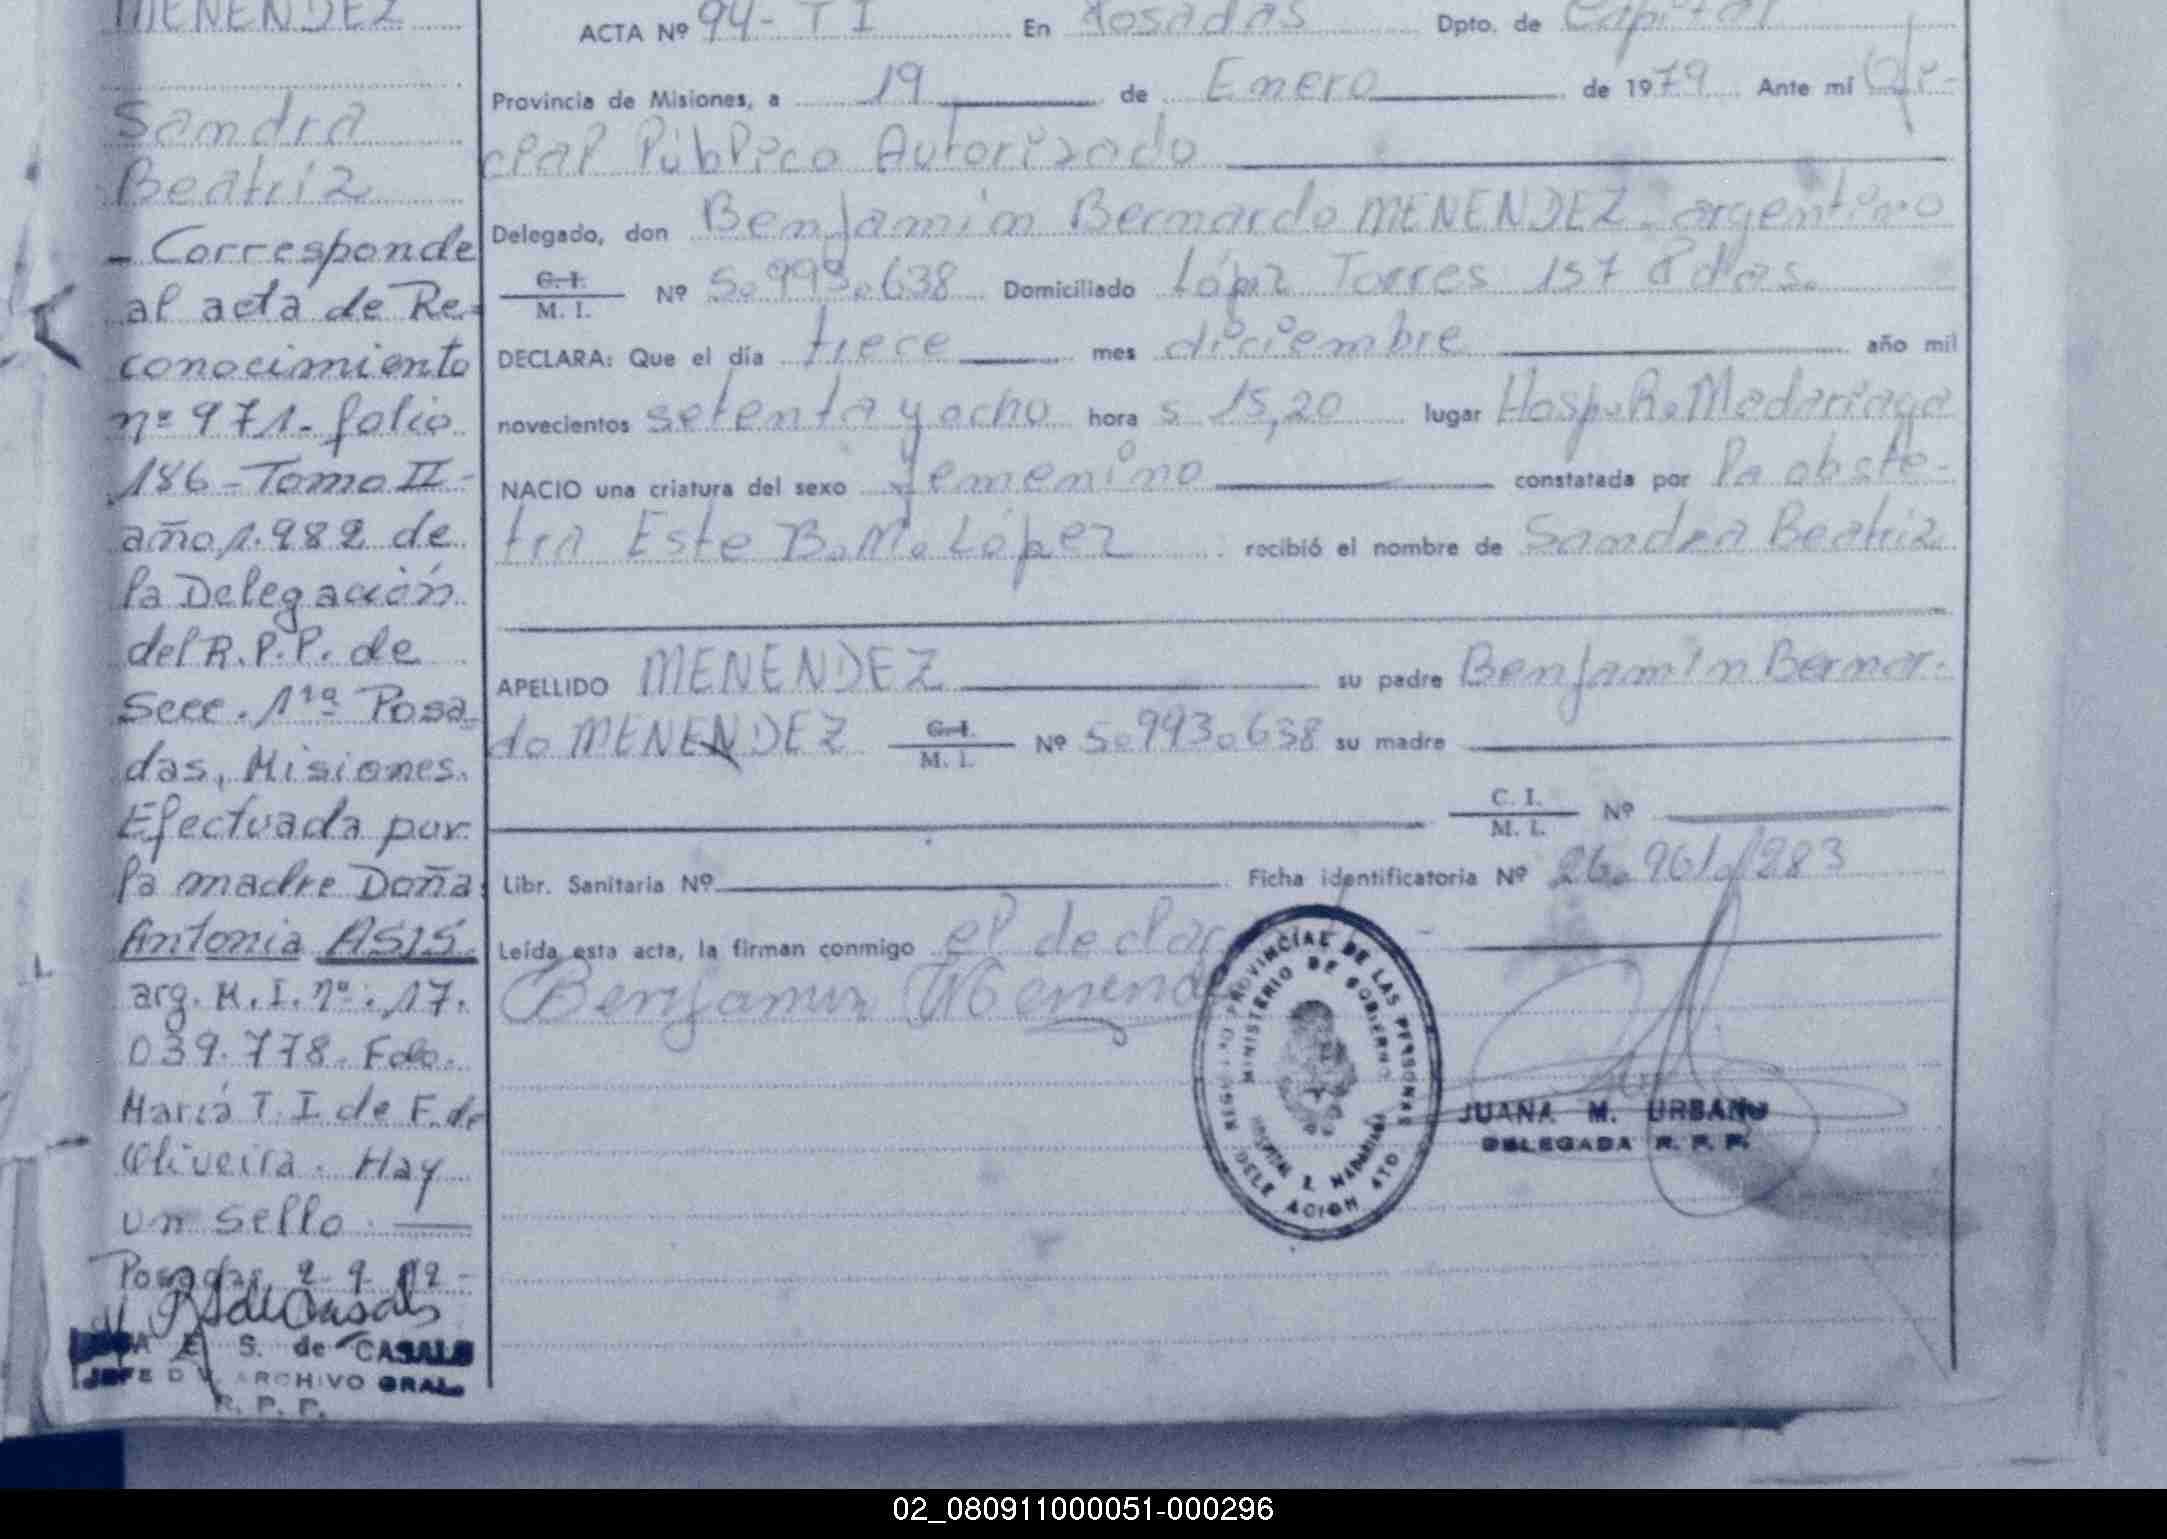 MENENDEZ
Sandra
Beatriz
- Corresponde
al acta de Re-
conocimiento
nº 971- folio
186 - Tomo II -
año 1.982 de
la Delegación
del R.P.P. de
Secc. 11ª Posa-
das, Misiones.
Efectuada por
la madre Doña
Antonia ASIS.
arg. M.I. nº: 17.
039.778. Fdo.
María T. I. de F. de
Oliveira. Hay
un sello.
Posadas, 2-9-82-
E S. de CASALS
JEFE DV. ARCHIVO GRAL.
R. P. P.
ACTA Nº 94- T I En Posadas Dpto. de Capital
Provincia de Misiones, a 19 de Enero de 1979 Ante mí Ofi-
cial Público Autorizado
Delegado, don Benjamin Bernardo MENENDEZ - argentino
C. I. / M. I. Nº 5.993.638 Domiciliado López Torres 157 Pdas.
DECLARA: Que el día trece mes diciembre año mil
novecientos setenta y ocho hora s 15,20 lugar Hosp. R. Madariaga
NACIO una criatura del sexo femenino constatada por la obste-
tra Este B. M. López recibió el nombre de Sandra Beatriz
APELLIDO MENENDEZ su padre Benjamin Bernar-
do MENENDEZ C. I. / M. I. Nº 5.993.638 su madre
C. I. / M. I. Nº
Libr. Sanitaria Nº Ficha identificatoria Nº 26.961.283
Leída esta acta, la firman conmigo el declar
Benjamin Menend
REGISTRO PROVINCIAL DE LAS PERSONAS
MINISTERIO DE GOBIERNO
HOSPITAL R. MADARIAGA
JUANA M. URBANO
DELEGADA R. P. P.
02_080911000051-000296